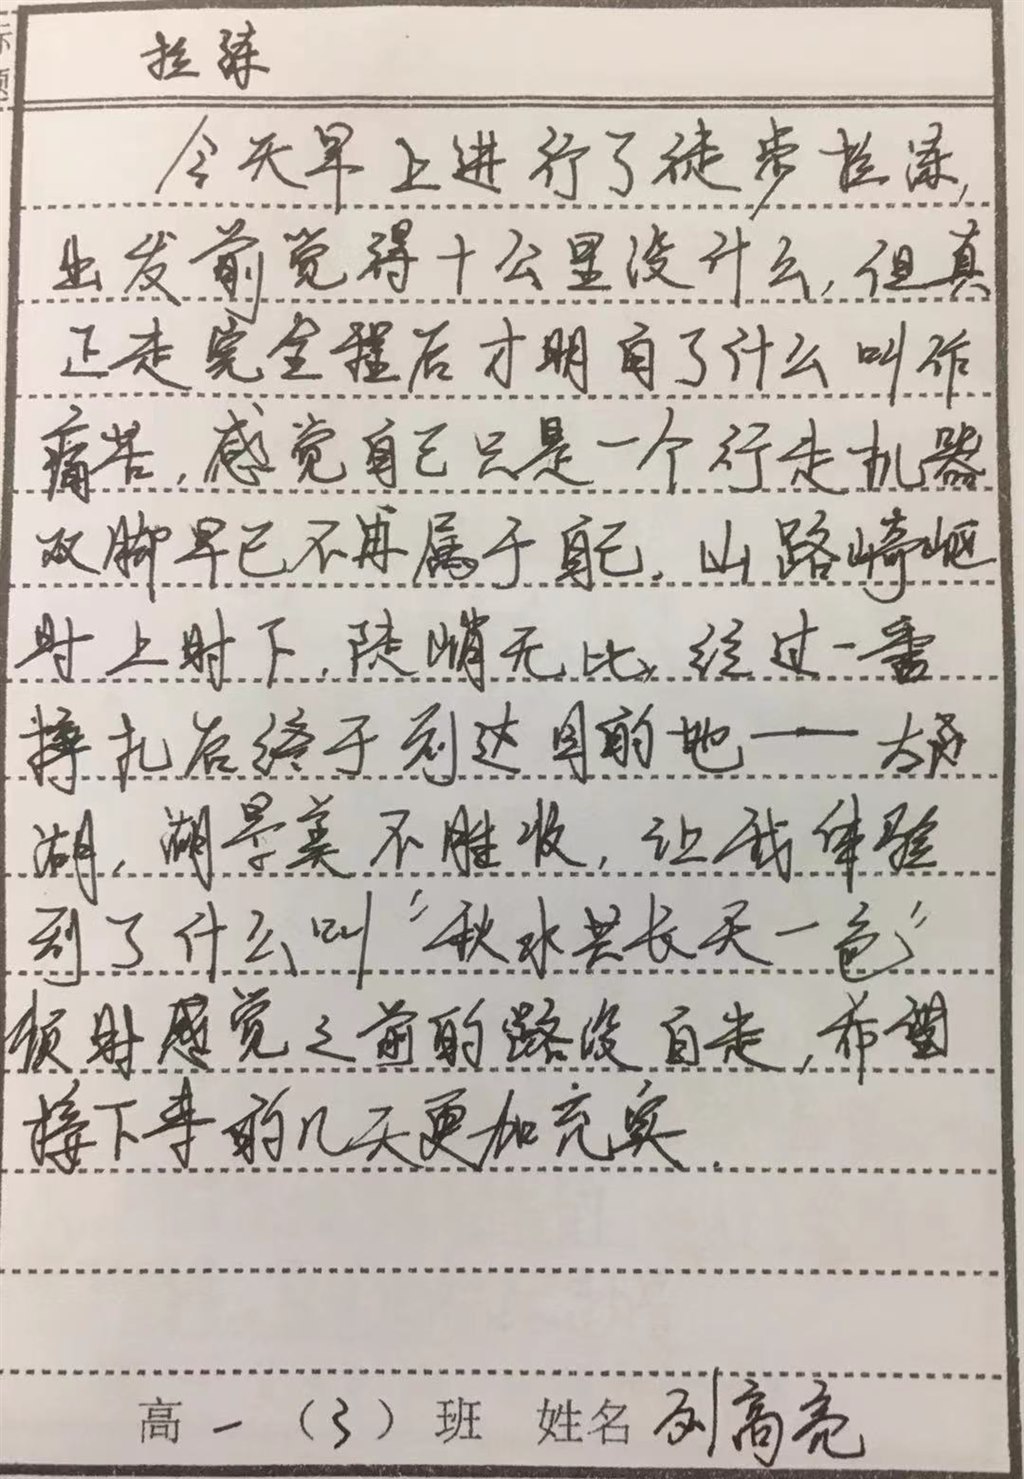 标题
拉练
今天早上进行了徒步拉练,
出发前觉得十公里没什么,但真
正走完全程后才明白了什么叫作
痛苦,感觉自己只是一个行走机器
双脚早已不再属于自己,山路崎岖
时上时下,陡峭无比,经过一番
挣扎后终于到达目的地——
湖,湖景美不胜收,让我体验
到了什么叫“秋水共长天一色”
顿时感觉之前的路没白走,希望
接下来的几天更加充实.
高一(3)班 姓名 刘高亮